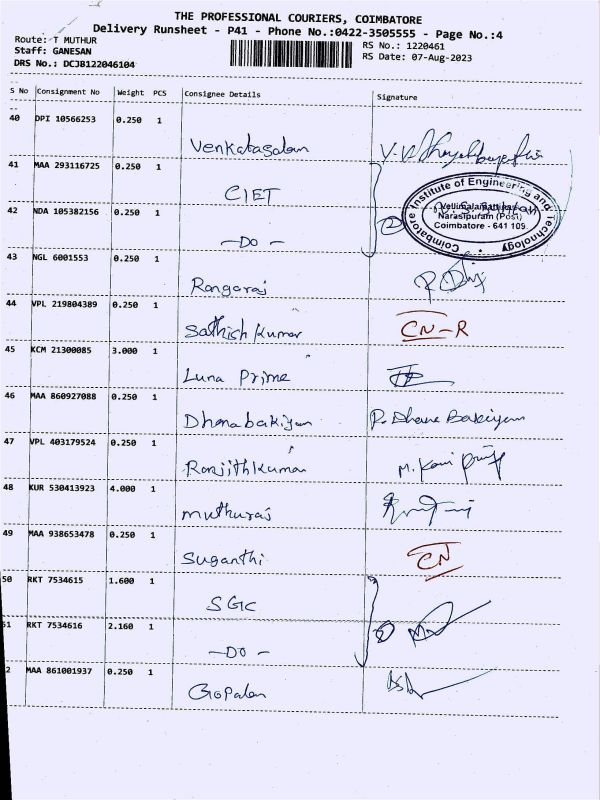 THE PROFESSIONAL COURIERS, COIMBATORE
Delivery Runsheet - P41 - Phone No.:0422-3505555 - Page No.:4
Route: T MUTHUR
RS No.: 1220461
Staff: GANESAN
RS Date: 07-Aug-2023
DRS No.: DCJB122046104
S No Consignment No Weight PCS Consignee Details Signature
40 DPI 10566253 0.250 1
Venkatasalam
41 MAA 293116725 0.250 1
CIET
Coimbatore Institute of Engineering and Technology
Vellimalaipattinam
Narasipuram (Post)
Coimbatore - 641 109.
42 NDA 105382156 0.250 1
2
-Do-
43 NGL 6001553 0.250 1
Rangaraj
44 VPL 219804389 0.250 1
Sathish Kumar CN-R
45 KCM 21300085 3.000 1
Luna Prime
46 MAA 860927088 0.250 1
Dhanabakiyam P. Dhana Bakiyam
47 VPL 403179524 0.250 1
Ranjithkumar
48 KUR 530413923 4.000 1
muthuraj
49 MAA 938653478 0.250 1
Suganthi CN
50 RKT 7534615 1.600 1
SGC
51 RKT 7534616 2.160 1
-DO-
2 MAA 861001937 0.250 1
Gopalan